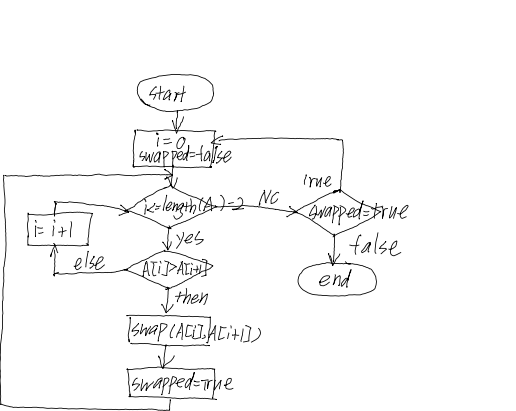 start
i=0
swapped=false
i<=length(A)-2
NC
True
swapped=true
i=i+1
yes
false
else
A[i]>A[i+1]
end
then
swap(A[i],A[i+1])
swapped=True